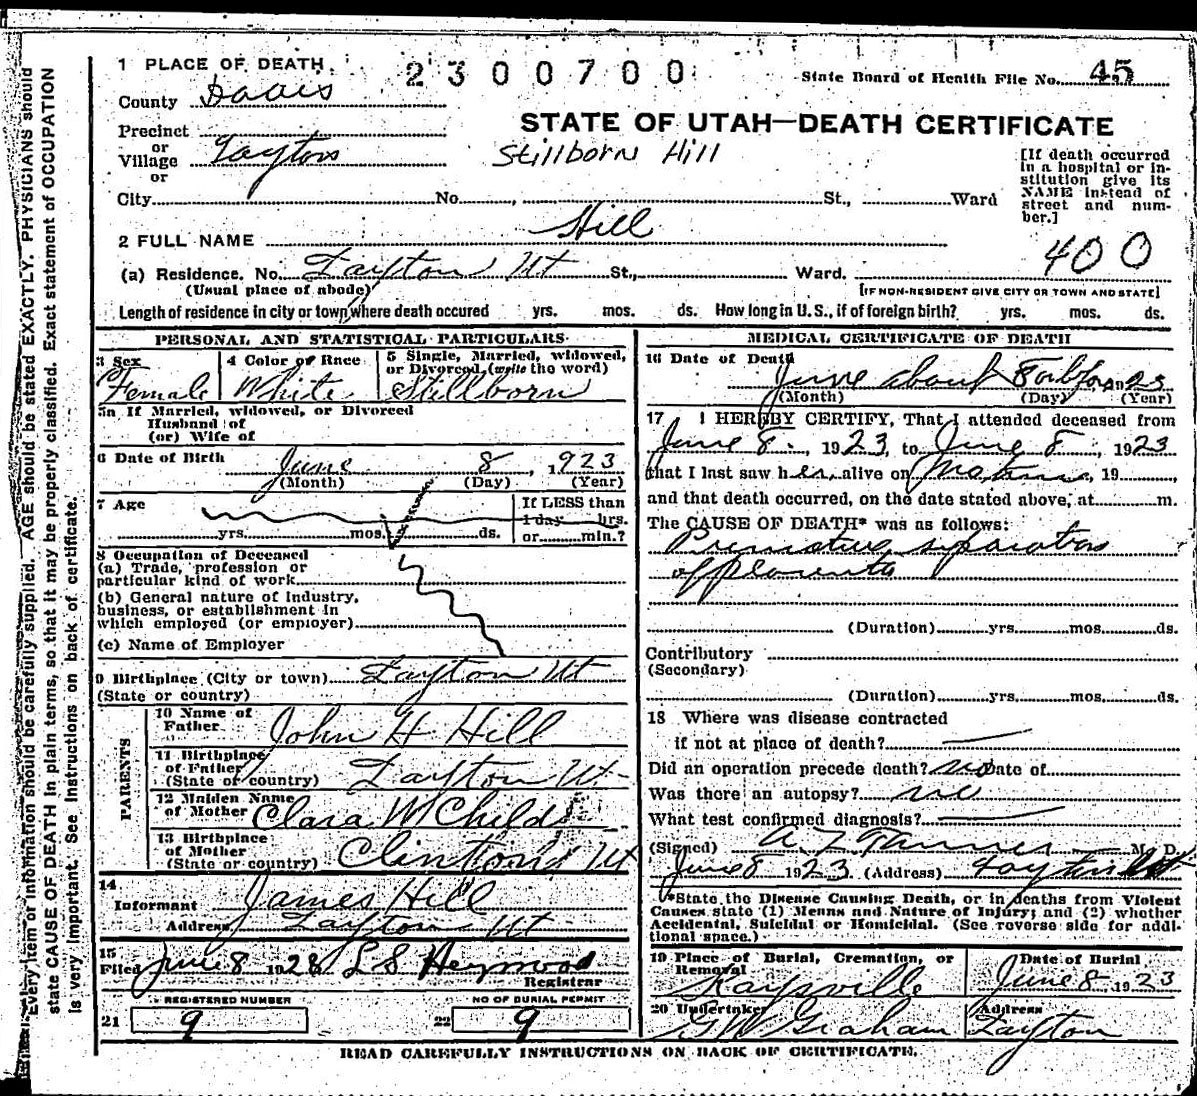 1 PLACE OF DEATH
2300700
State Board of Health File No. 45
County Davis
STATE OF UTAH—DEATH CERTIFICATE
Precinct
or
Village Layton
or
Stillborn Hill
[If death occurred in a hospital or in-stitution give its NAME instead of street and num-ber.]
City No. , St., Ward
2 FULL NAME Hill
400
(a) Residence. No. Layton Ut St., Ward.
(Usual place of abode)
[IF NON-RESIDENT GIVE CITY OR TOWN AND STATE]
Length of residence in city or town where death occured yrs. mos. ds. How long in U. S., if of foreign birth? yrs. mos. ds.
PERSONAL AND STATISTICAL PARTICULARS
3 Sex
Female
4 Color or Race
White
5 Single, Married, widowed,
or Divorced, (write the word)
Stillborn
5a If Married, widowed, or Divorced
Husband of
(or) Wife of
6 Date of Birth June 8, 1923
(Month) (Day) (Year)
7 Age
yrs. mos. ds.
If LESS than
1 day hrs.
or min.?
8 Occupation of Deceased
(a) Trade, profession or
particular kind of work
(b) General nature of industry,
business, or establishment in
which employed (or employer)
(c) Name of Employer
9 Birthplace (City or town) Layton Ut
(State or country)
PARENTS
10 Name of
Father John H Hill
11 Birthplace
of Father
(State or country) Layton Ut
12 Maiden Name
of Mother Clara W Child
13 Birthplace
of Mother
(State or country) Clinton Ut
14
Informant James Hill
Address Layton Ut
15
Filed June 8 1923 L S Heywood
Registrar
REGISTERED NUMBER
21 9
NO OF BURIAL PERMIT
22 9
MEDICAL CERTIFICATE OF DEATH
16 Date of Death
June about 8 1923
(Month) (Day) (Year)
17 I HEREBY CERTIFY, That I attended deceased from
June 8, 1923, to June 8, 1923
that I last saw her alive on , 19
and that death occurred, on the date stated above, at m.
The CAUSE OF DEATH* was as follows:
Premature separation
of placenta
(Duration) yrs. mos. ds.
Contributory
(Secondary)
(Duration) yrs. mos. ds.
18 Where was disease contracted
if not at place of death?
Did an operation precede death? no Date of
Was there an autopsy? no
What test confirmed diagnosis?
(Signed) A. Z. Tanner M. D.
June 8 1923 (Address) Layton Ut
*State the Disease Causing Death, or in deaths from Violent
Causes state (1) Means and Nature of Injury; and (2) whether
Accidental, Suicidal or Homicidal. (See reverse side for addi-
tional space.)
19 Place of Burial, Cremation, or
Removal
Kaysville
Date of Burial
June 8 1923
20 Undertaker
G W Graham
Address
Layton
READ CAREFULLY INSTRUCTIONS ON BACK OF CERTIFICATE.
Every item of information should be carefully supplied. AGE should be stated EXACTLY. PHYSICIANS should
state CAUSE OF DEATH in plain terms, so that it may be properly classified. Exact statement of OCCUPATION
is very important. See instructions on back of certificate.